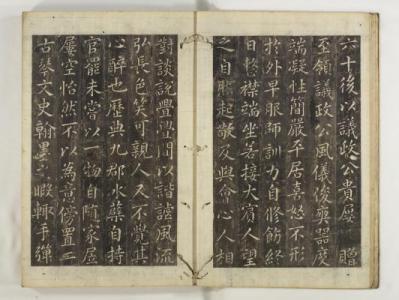 六十後以議政公貴屢贈
至領議政公風儀俊爽器度
端凝性簡嚴平居喜怒不形
於外早服師訓力自修飭終
日整襟端坐若接大賓人望
之自能起敬及與會心人相
對談說亹亹間以諧謔風流
弘長色笑可親人又不覺其
心醉也歷典九郡水蘗自持
官罷未嘗以一物自隨家屋
屢空怡然不以為意傍置一
古琴文史翰墨之暇輒手彈